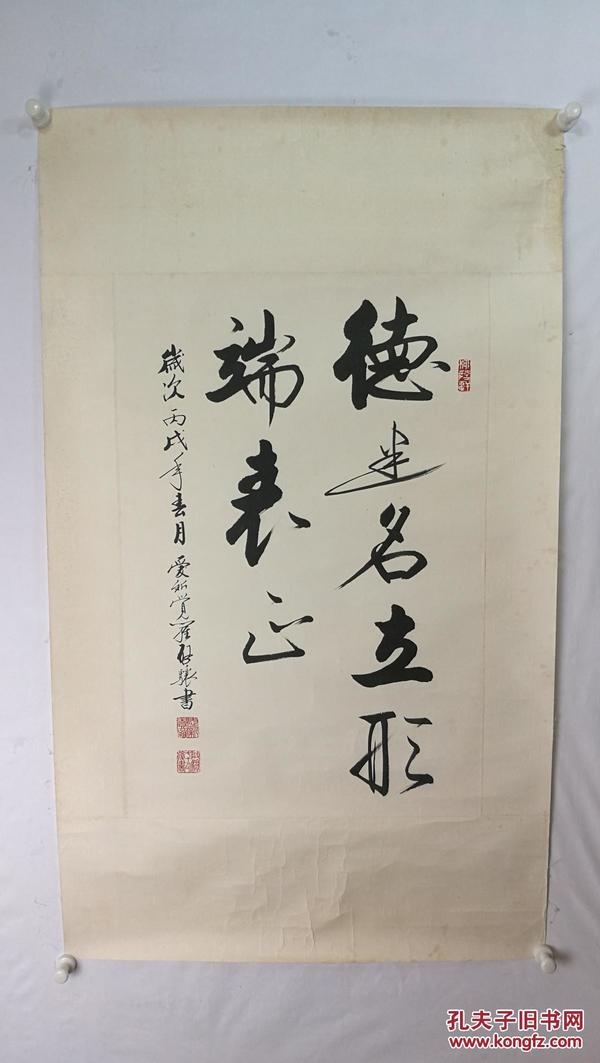 德建名立形
端表正
歲次丙戌年春月 愛新觉羅启骧書
孔夫子旧书网
www.kongfz.com